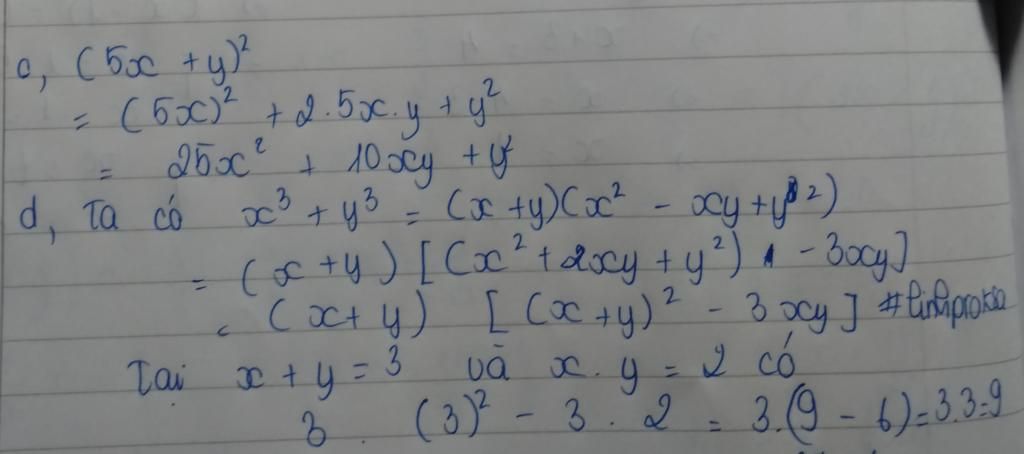 c, (5x + y)²
= (5x)² + 2.5x.y + y²
= 25x² + 10xy + y²
d, Ta có x³ + y³ = (x + y)(x² - xy + y²)
= (x + y) [(x² + 2xy + y²) - 3xy]
= (x + y) [(x + y)² - 3xy]
Tại x + y = 3 và x . y = 2 có
3 . (3)² - 3 . 2 = 3.(9 - 6) = 3.3 = 9